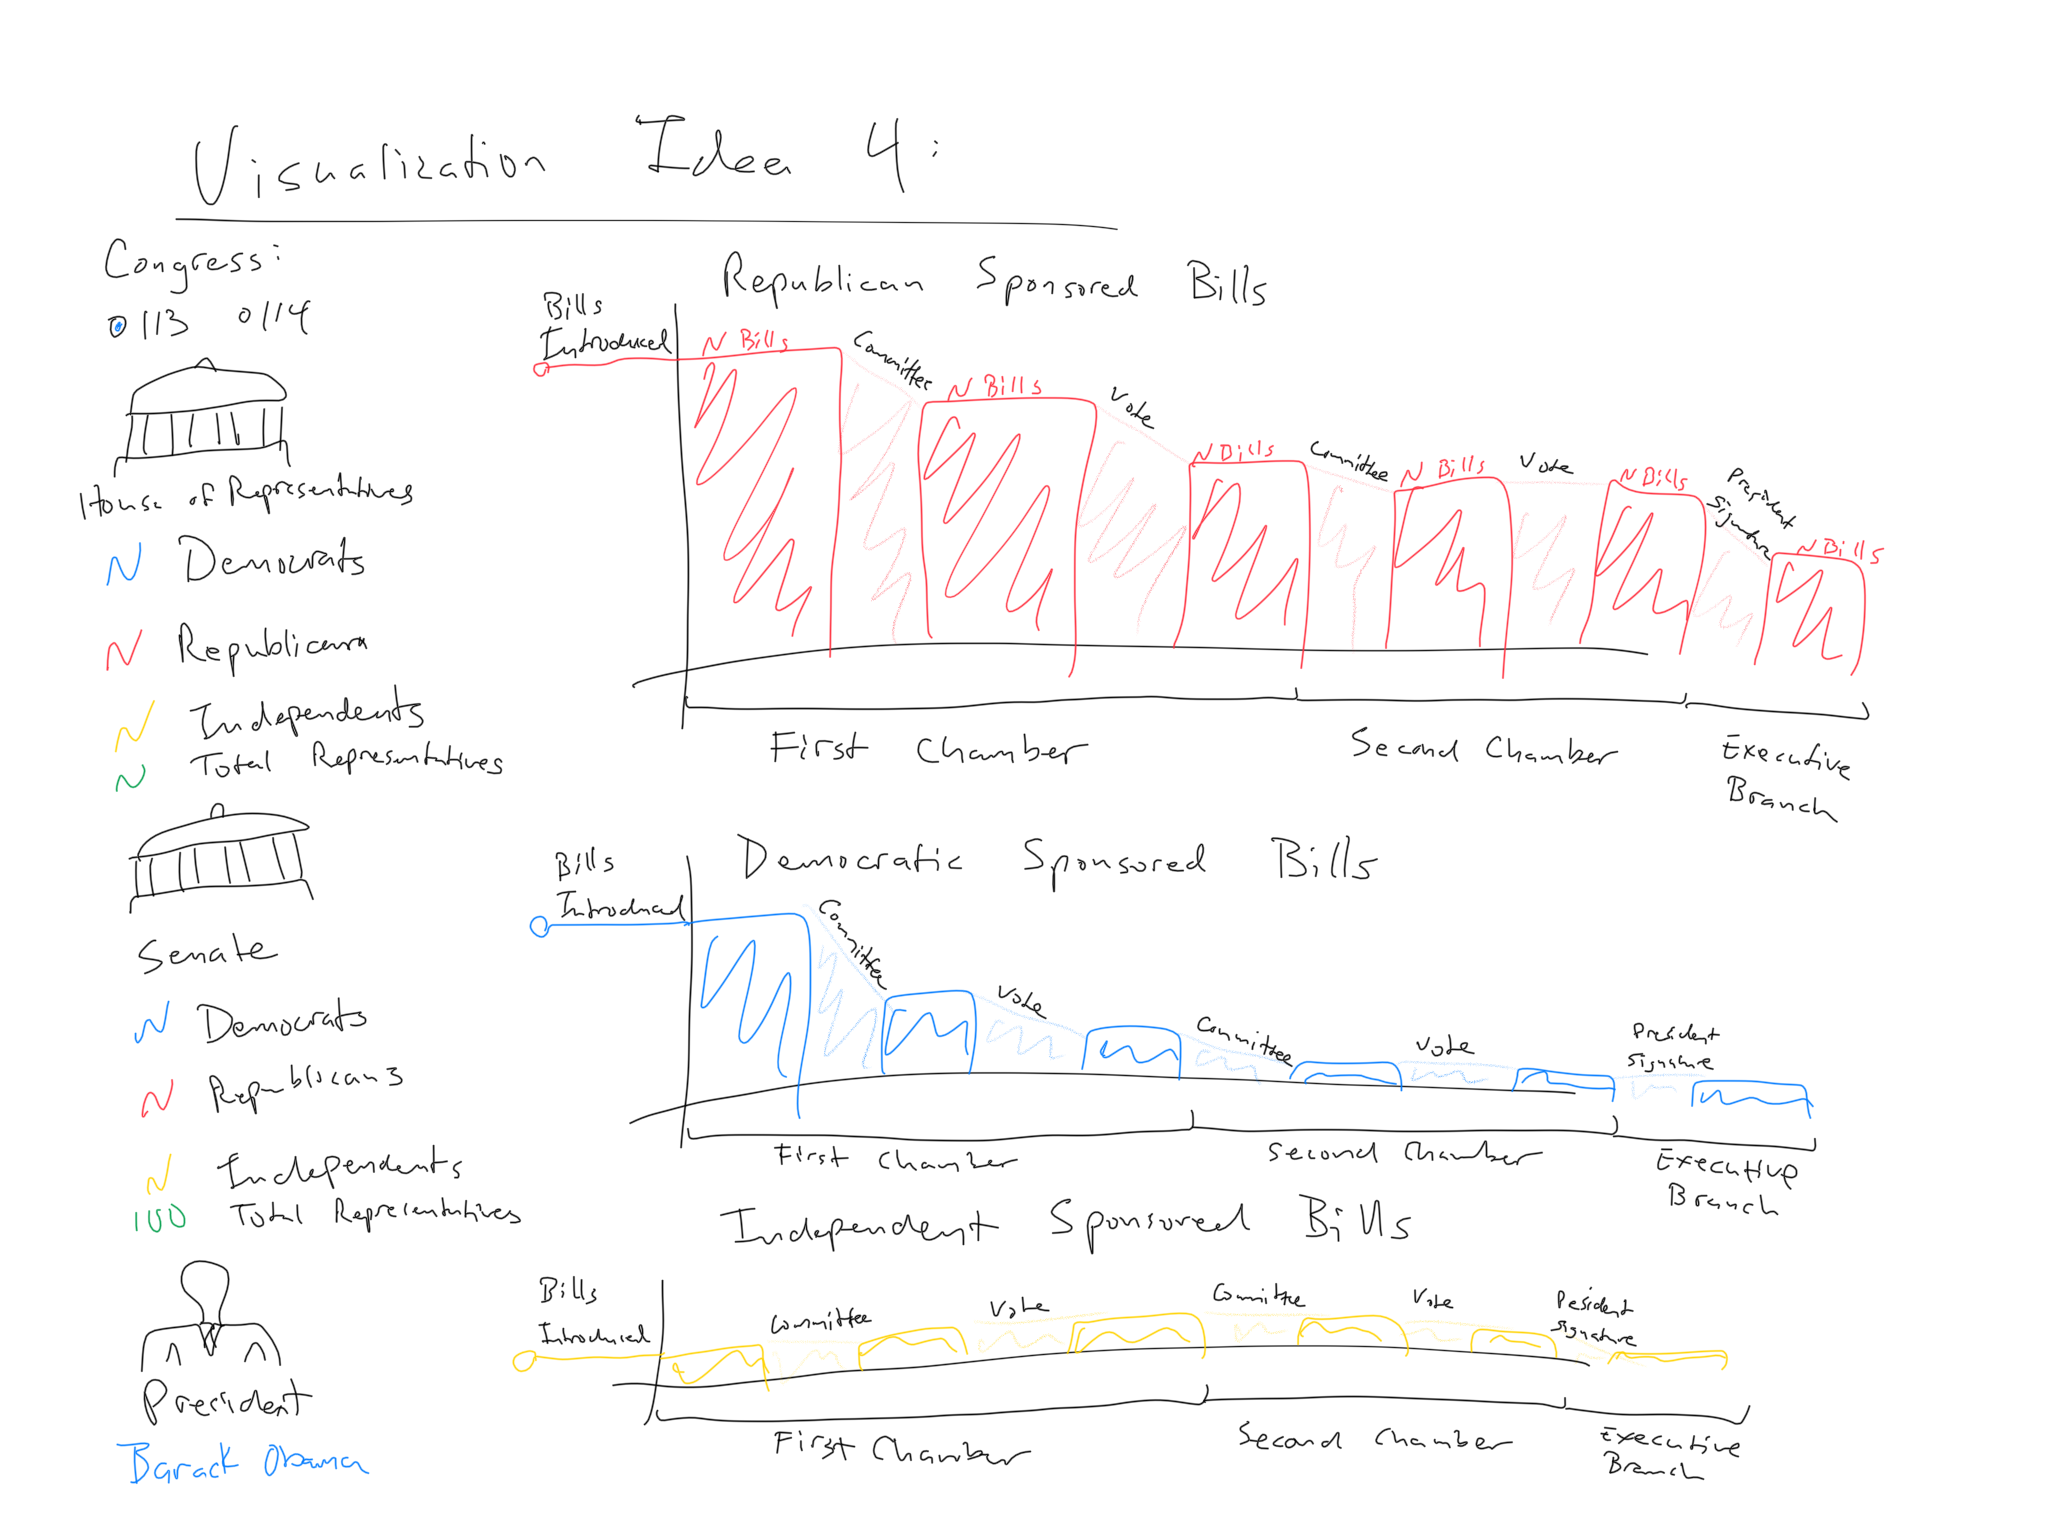 Visualization Idea 4:
Congress:
113 114
House of Representatives
N Democrats
N Republicans
N Independents
N Total Representatives
Senate
N Democrats
N Republicans
N Independents
100 Total Representatives
President
Barack Obama
Republican Sponsored Bills
Bills
Introduced
N Bills
Committee
N Bills
Vote
N Bills
Committee
N Bills
Vote
N Bills
President
Signature
N Bills
First Chamber
Second Chamber
Executive
Branch
Democratic Sponsored Bills
Bills
Introduced
Committee
Vote
Committee
Vote
President
Signature
First Chamber
Second Chamber
Executive
Branch
Independent Sponsored Bills
Bills
Introduced
Committee
Vote
Committee
Vote
President
Signature
First Chamber
Second Chamber
Executive
Branch